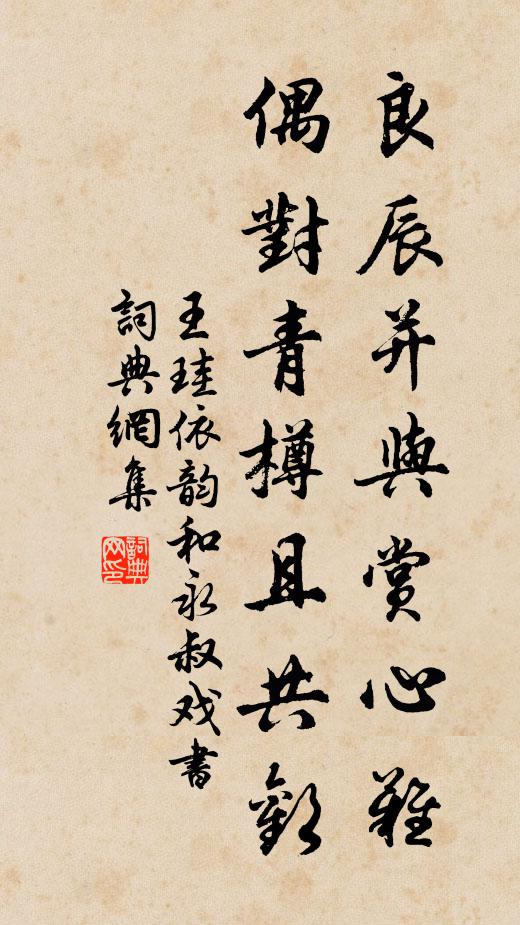 良辰并與賞心難
偶對青樽且共歡
王珪依韵和永叔戏書
詞典網集
詞典网印